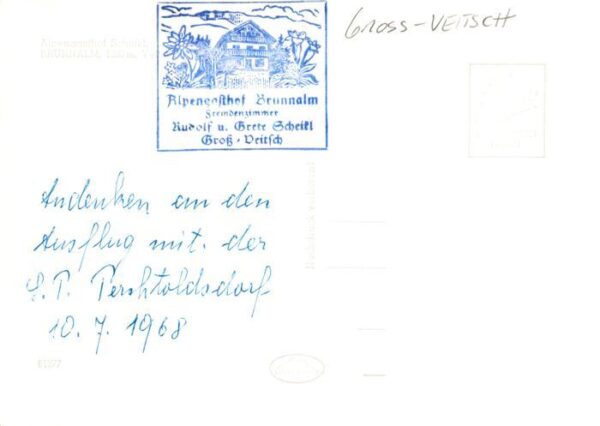 GROSS-VEITSCH
Alpengasthof Scheikl,
BRUNNALM,
Alpengasthof Brunnalm
Fremdenzimmer
Rudolf u. Grete Scheikl
Groß-Veitsch
Andenken an den
Ausflug mit der
Pershtoldsdorf
10. 7. 1968